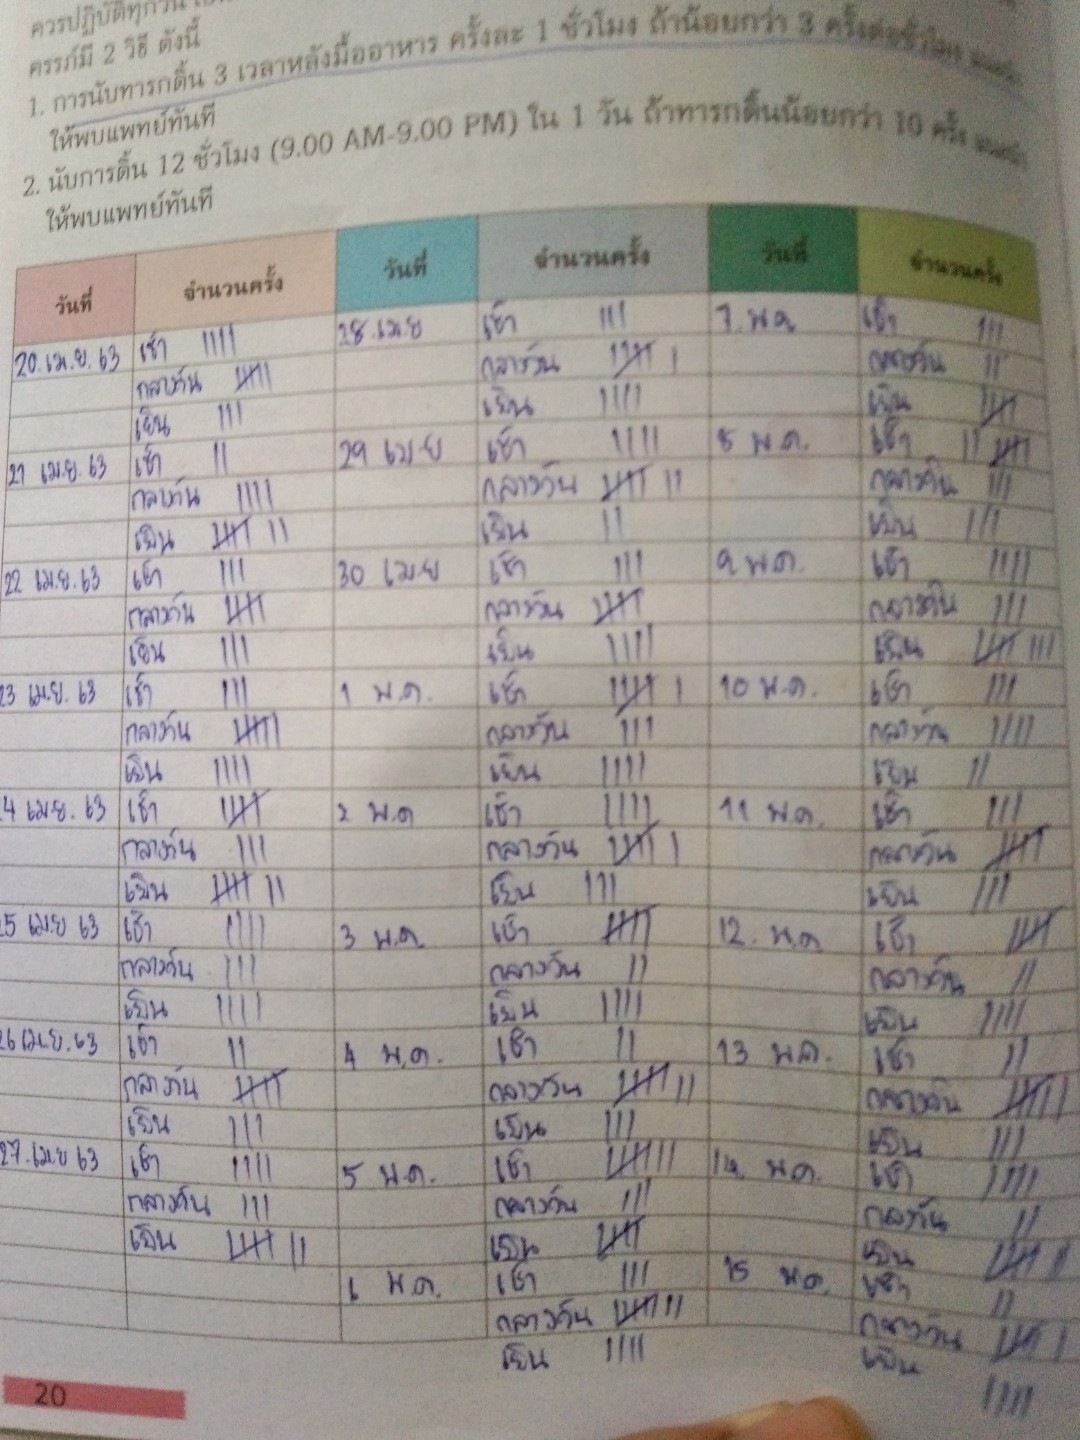 ควรปฏิบัติทุกวัน
ครรภ์มี 2 วิธี ดังนี้
1. การนับทารกดิ้น 3 เวลาหลังมื้ออาหาร ครั้งละ 1 ชั่วโมง ถ้าน้อยกว่า 3 ครั้งต่อชั่วโมง
ให้พบแพทย์ทันที
2. นับการดิ้น 12 ชั่วโมง (9.00 AM-9.00 PM) ใน 1 วัน ถ้าทารกดิ้นน้อยกว่า 10 ครั้ง
ให้พบแพทย์ทันที
วันที่ จำนวนครั้ง วันที่ จำนวนครั้ง วันที่ จำนวนครั้ง
20 เม.ย. 63 เช้า 28 เม.ย เช้า 7 พ.ค เช้า
กลางวัน กลางวัน กลางวัน
เย็น เย็น เย็น
21 เม.ย. 63 เช้า 29 เม.ย เช้า 8 พ.ค. เช้า
กลางวัน กลางวัน กลางวัน
เย็น เย็น เย็น
22 เม.ย. 63 เช้า 30 เม.ย เช้า 9 พ.ค. เช้า
กลางวัน กลางวัน กลางวัน
เย็น เย็น เย็น
23 เม.ย. 63 เช้า 1 พ.ค. เช้า 10 พ.ค. เช้า
กลางวัน กลางวัน กลางวัน
เย็น เย็น เย็น
4 เม.ย. 63 เช้า 2 พ.ค เช้า 11 พ.ค. เช้า
กลางวัน กลางวัน กลางวัน
เย็น เย็น เย็น
5 เม.ย 63 เช้า 3 พ.ค. เช้า 12. พ.ค เช้า
กลางวัน กลางวัน กลางวัน
เย็น เย็น เย็น
26 เม.ย. 63 เช้า 4 พ.ค. เช้า 13 พ.ค. เช้า
กลางวัน กลางวัน กลางวัน
เย็น เย็น เย็น
27 เม.ย 63 เช้า 5 พ.ค. เช้า 14 พ.ค. เช้า
กลางวัน กลางวัน กลางวัน
เย็น เย็น เย็น
6 พ.ค. เช้า 15 พ.ค. เช้า
กลางวัน กลางวัน
เย็น เย็น
20